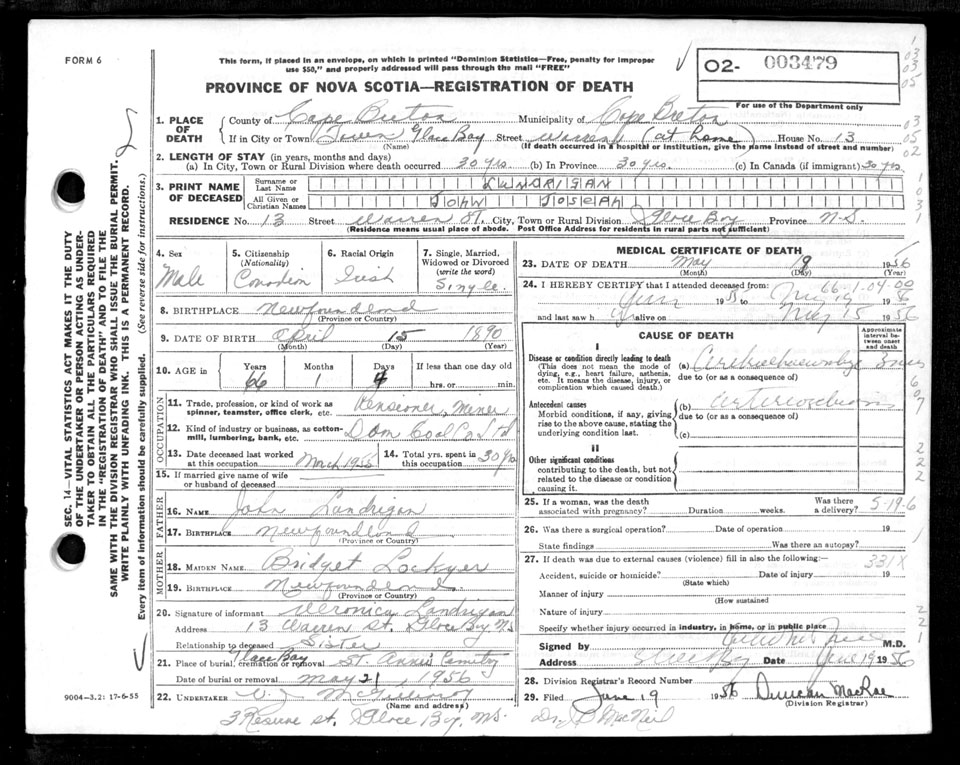 FORM 6
This form, if placed in an envelope, on which is printed "Dominion Statistics—Free, penalty for improper
use $50," and properly addressed will pass through the mail "FREE"
02- 003479
PROVINCE OF NOVA SCOTIA—REGISTRATION OF DEATH
For use of the Department only
1. PLACE OF DEATH
County of Cape Breton Municipality of Cape Breton
If in City or Town Town Glace Bay Street Warren (at home) House No. 13
(Name) (If death occurred in a hospital or institution, give the name instead of street and number)
2. LENGTH OF STAY (in years, months and days)
(a) In City, Town or Rural Division where death occurred 30 yrs. (b) In Province 30 yrs. (c) In Canada (if immigrant) 30 yrs
3. PRINT NAME OF DECEASED
Surname or Last Name LANDRIGAN
All Given or Christian Names JOHN JOSEPH
RESIDENCE No. 13 Street Warren St. City, Town or Rural Division Glace Bay Province N.S.
(Residence means usual place of abode. Post Office Address for residents in rural parts not sufficient)
4. Sex Male
5. Citizenship (Nationality) Canadian
6. Racial Origin Irish
7. Single, Married, Widowed or Divorced (write the word) Single.
8. BIRTHPLACE Newfoundland
(Province or Country)
9. DATE OF BIRTH April 15 1890
(Month) (Day) (Year)
10. AGE in Years Months Days If less than one day old
66 1 4 hrs. or min.
OCCUPATION
11. Trade, profession, or kind of work as
spinner, teamster, office clerk, etc. Pensioner, Miner
12. Kind of industry or business, as cotton-
mill, lumbering, bank, etc. Dom Coal Co Ltd
13. Date deceased last worked at this occupation March 1955
14. Total yrs. spent in this occupation 30 yrs
15. If married give name of wife
or husband of deceased
FATHER
16. NAME John Landrigan
17. BIRTHPLACE Newfoundland
(Province or Country)
MOTHER
18. MAIDEN NAME Bridget Lockyer
19. BIRTHPLACE Newfoundland
(Province or Country)
20. Signature of informant Veronica Landrigan
Address 13 Warren St. Glace Bay N.S
Relationship to deceased Sister
21. Place of burial, cremation or removal Glace Bay St. Anne's Cemetry
Date of burial or removal May 21, 1956
22. UNDERTAKER V. J. McGillivray
(Name and address)
St. Glace Bay, N.S.
MEDICAL CERTIFICATE OF DEATH
23. DATE OF DEATH May 19 1956
(Month) (Day) (Year)
24. I HEREBY CERTIFY that I attended deceased from:
66-1-04-00
19 to May 19 1956
and last saw h alive on May 15 1956
CAUSE OF DEATH
Approximate interval between onset and death
I
Disease or condition directly leading to death
(This does not mean the mode of dying, e.g., heart failure, asthenia, etc. It means the disease, injury, or complication which caused death.)
(a)
due to (or as a consequence of)
Antecedent causes
Morbid conditions, if any, giving rise to the above cause, stating the underlying condition last.
(b)
due to (or as a consequence of)
(c)
II
Other significant conditions
contributing to the death, but not related to the disease or condition causing it.
25. If a woman, was the death
associated with pregnancy? Duration weeks. Was there a delivery?
5-19-6
26. Was there a surgical operation? Date of operation 19
State findings Was there an autopsy?
27. If death was due to external causes (violence) fill in also the following:—
331X
Accident, suicide or homicide? Date of injury 19
(State which)
Manner of injury
(How sustained
Nature of injury
Specify whether injury occurred in industry, in home, or in public place
Signed by M.D.
Address Glace Bay Date June 19 1956
28. Division Registrar's Record Number
29. Filed June 19 1956 Duncan MacRae
(Division Registrar)
Dr. MacNeil
SEC. 14—VITAL STATISTICS ACT MAKES IT THE DUTY
OF THE UNDERTAKER OR PERSON ACTING AS UNDER-
TAKER TO OBTAIN ALL THE PARTICULARS REQUIRED
IN THE "REGISTRATION OF DEATH" AND TO FILE THE
SAME WITH THE DIVISION REGISTRAR WHO SHALL ISSUE THE BURIAL PERMIT.
WRITE PLAINLY WITH UNFADING INK. THIS IS A PERMANENT RECORD.
Every item of information should be carefully supplied. (See reverse side for instructions.)
9004—3.2: 17-6-55